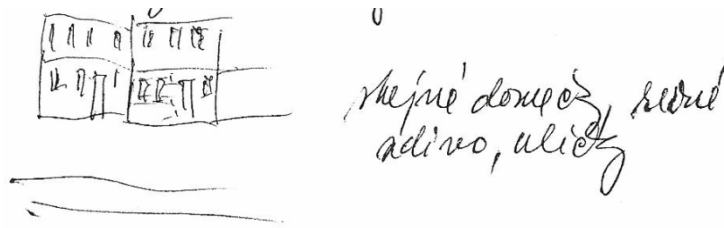 stejné domečky, rezné
zdivo, uličky